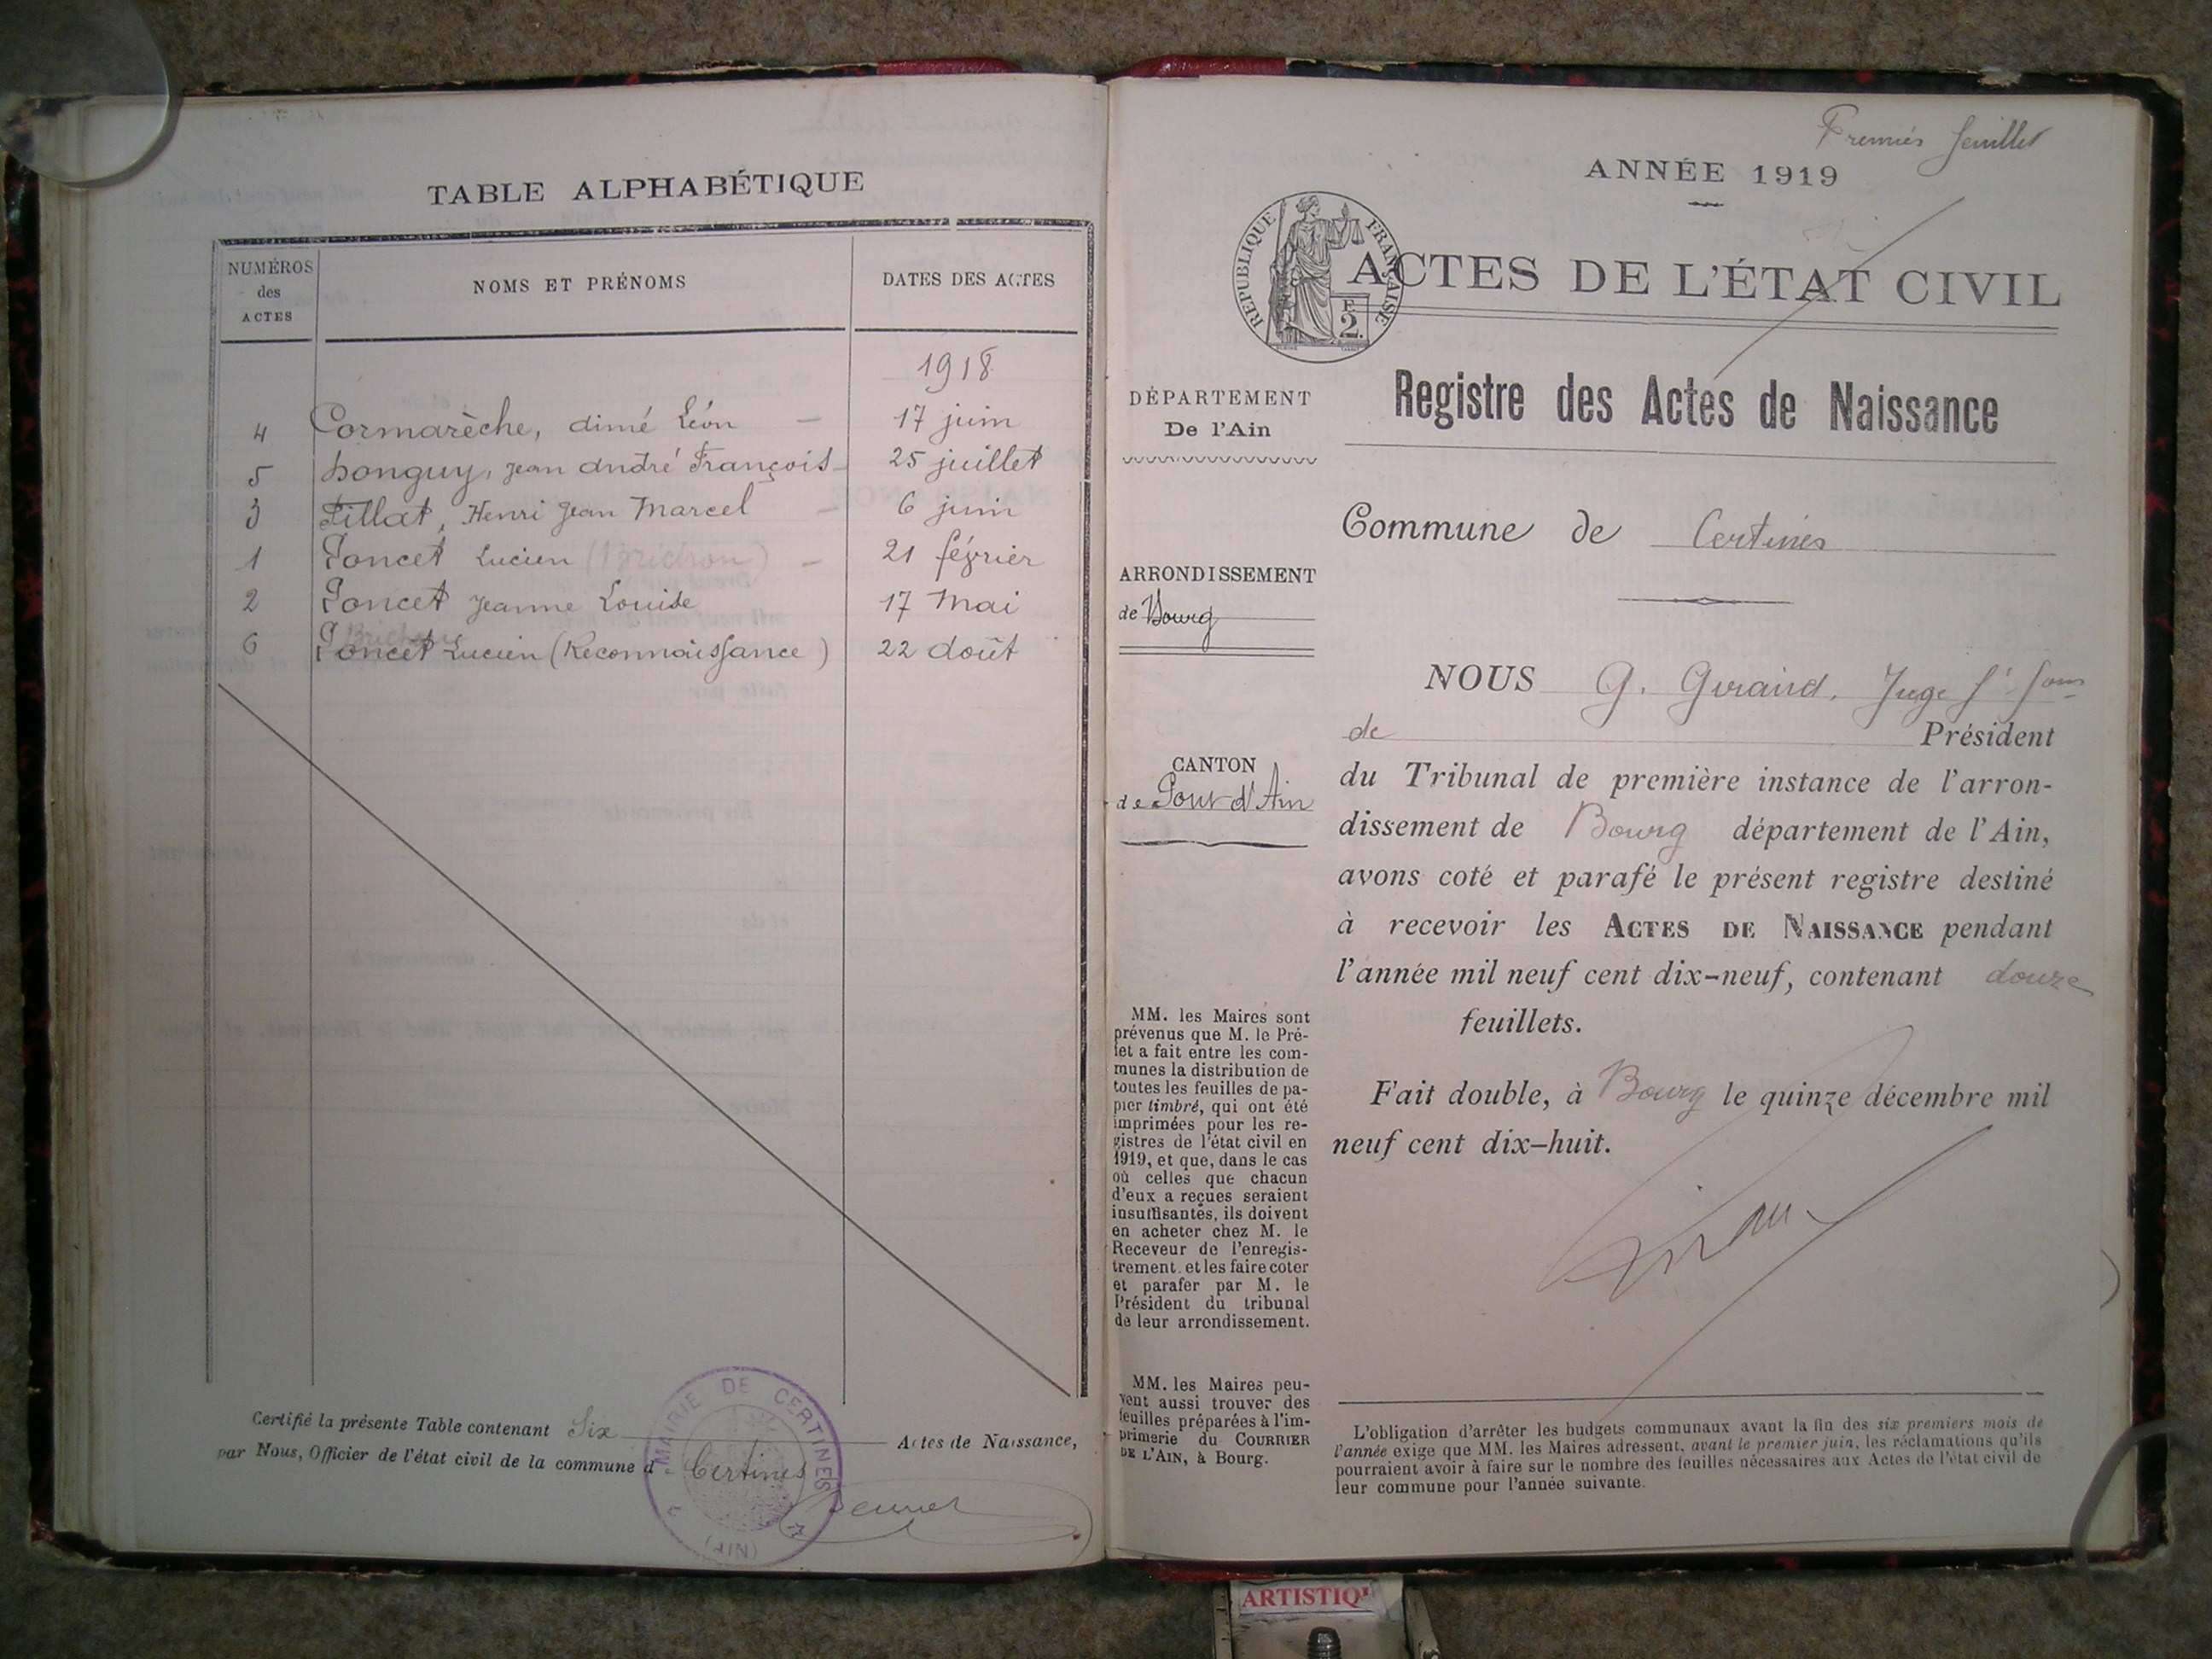 TABLE ALPHABÉTIQUE
NUMÉROS
des
ACTES
NOMS ET PRÉNOMS
DATES DES ACTES
1918
4 Cormarèche, Aimé Léon 17 juin
5 Longuy, Jean André François 25 juillet
3 Pillat, Henri Jean Marcel 6 juin
1 Poncet Lucien (Brichon) 21 février
2 Poncet Jeanne Louise 17 Mai
6 Poncet Lucien (Reconnaissance) 22 Août
Certifié la présente Table contenant Six Actes de Naissance,
par Nous, Officier de l'état civil de la commune d Certines
MAIRIE DE CERTINES
(AIN)
Premier feuillet
ANNÉE 1919
REPUBLIQUE FRANÇAISE
2.
ACTES DE L'ÉTAT CIVIL
Registre des Actes de Naissance
DÉPARTEMENT
De l'Ain
ARRONDISSEMENT
de Bourg
CANTON
de Pont d'Ain
MM. les Maires sont
prévenus que M. le Pré-
fet a fait entre les com-
munes la distribution de
toutes les feuilles de pa-
pier timbré, qui ont été
imprimées pour les re-
gistres de l'état civil en
1919, et que, dans le cas
où celles que chacun
d'eux a reçues seraient
insuffisantes, ils doivent
en acheter chez M. le
Receveur de l'enregis-
trement. et les faire coter
et parafer par M. le
Président du tribunal
de leur arrondissement.
MM. les Maires peu-
vent aussi trouver des
feuilles préparées à l'im-
primerie du COURRIER
DE L'AIN, à Bourg.
Commune de Certines
NOUS G. Giraud, Juge
de Président
du Tribunal de première instance de l'arron-
dissement de Bourg département de l'Ain,
avons coté et parafé le présent registre destiné
à recevoir les ACTES DE NAISSANCE pendant
l'année mil neuf cent dix-neuf, contenant douze
feuillets.
Fait double, à Bourg le quinze décembre mil
neuf cent dix-huit.
L'obligation d'arrêter les budgets communaux avant la fin des six premiers mois de
l'année exige que MM. les Maires adressent, avant le premier juin, les réclamations qu'ils
pourraient avoir à faire sur le nombre des feuilles nécessaires aux Actes de l'état civil de
leur commune pour l'année suivante.
ARTISTIQ